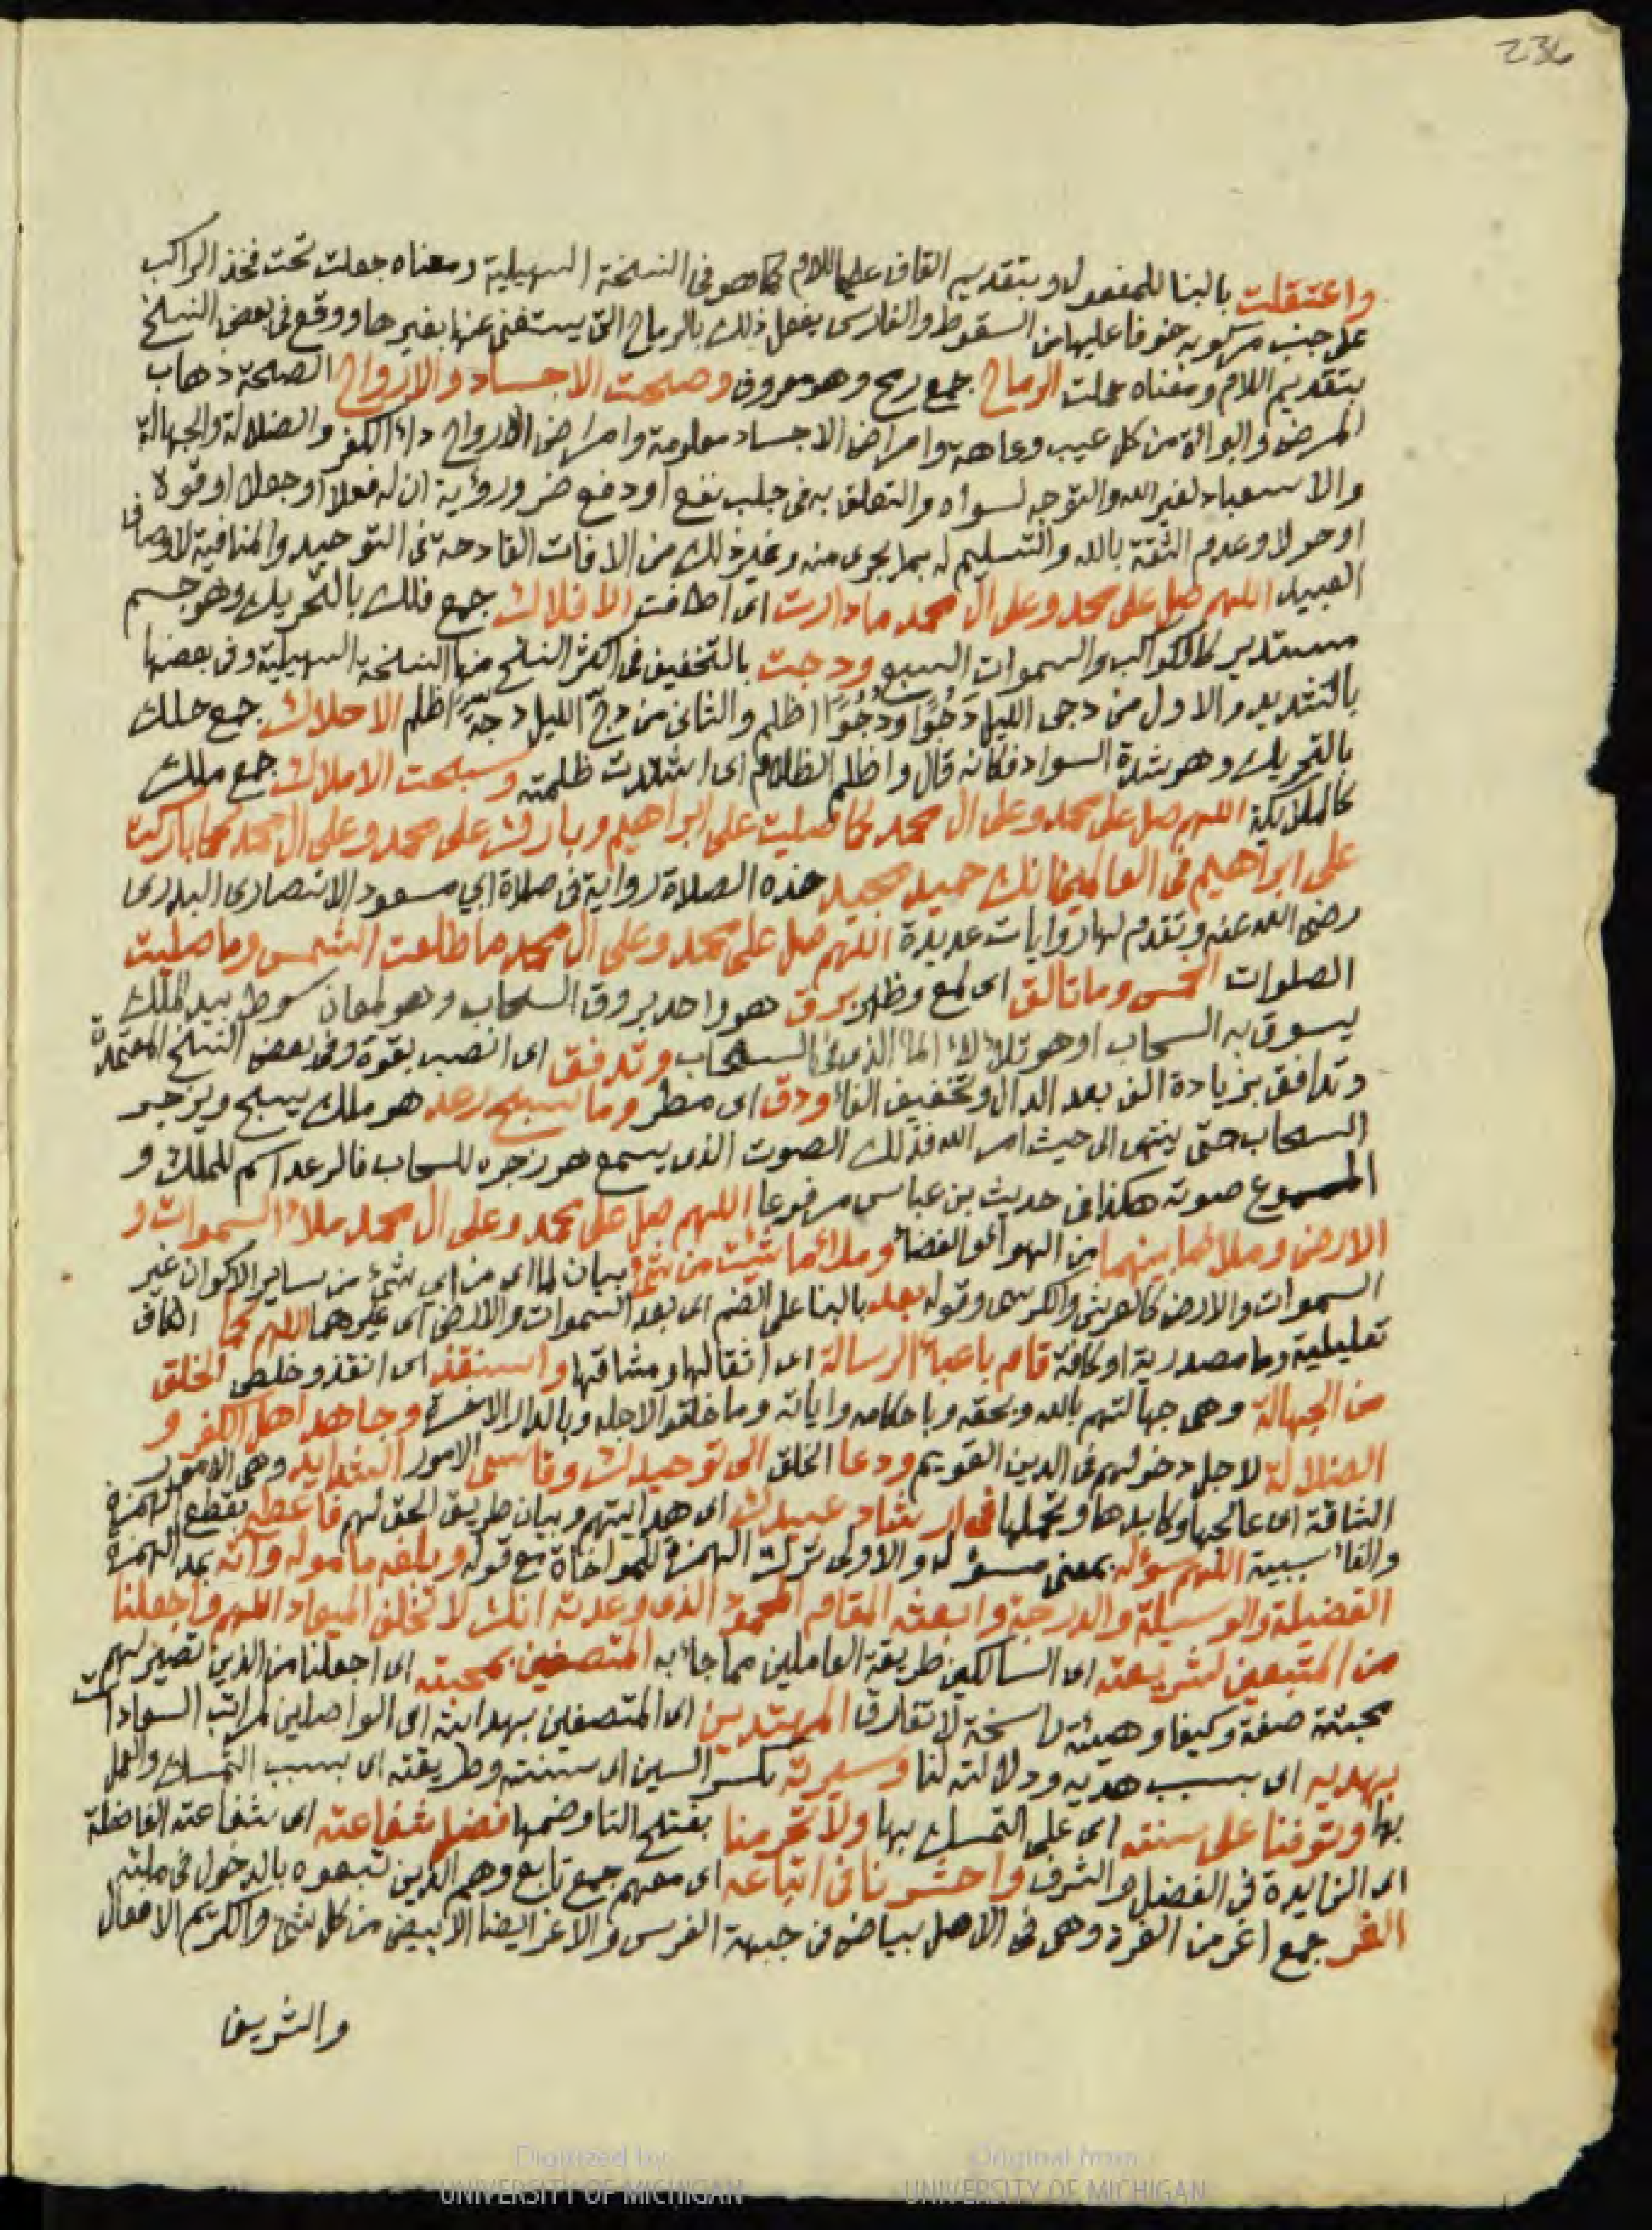 236
واعتقلت بالبنا للمفعول وبتقديم القاف على اللام كما هو فى النسخة السهيلية ومعناه جعلت تحت فخذ الراكب
على جنب مركوبه خوفا عليها من السقوط والفارس يفعل ذلك بالرماح التى يستغنى عنها بغيرها ووقع فى بعض النسخ
بتقديم اللام ومعناه حملت الرماح جمع رمح وهو معروف وصحت الاجساد والارواح الصحة ذهاب
المرض والبراة من كل عيب وعاهة وامراض الاجساد معلومة وامراض الارواح داء الكفر والضلالة والجهالة
والاستعباد لغير الله والتوجه لسواه والتعلق به فى جلب نفع او دفع ضر ورؤية ان له فعلا او جعلا او قوة
او حولا وعدم الثقة بالله والتسليم له بما يجرى منه وغير ذلك من الافات القادحة فى التوحيد والمنافية لاوصاف
العبيد اللهم صل على محمد وعلى ال محمد ما دارت اى اطافت الافلاك جمع فلك بالتحريك وهو جسم
مستدير كالكواكب والسموات السبع ودجت بالتخفيف فى اكثر النسخ منها النسخة السهيلية وفى بعضها
بالتشديد والاول من دجى الليل دَجْوًا ودُجُوًّا اظلم والثانى من دجّ الليل دجة اظلم الاحلاك جمع حلك
بالتحريك وهو شدة السواد فكانه قال واظلم الظلام اى اشتدت ظلمته وسبحت الاملاك جمع ملك
كالملائكة اللهم صل على محمد وعلى ال محمد كما صليت على ابراهيم وبارك على محمد وعلى ال محمد كما باركت
على ابراهيم فى العالمين انك حميد مجيد هذه الصلاة رواية فى صلاة ابي مسعود الانصارى البدرى
رضى الله عنه وتقدم لها روايات عديدة اللهم صل على محمد وعلى ال محمد ما طلعت الشمس وما صليت
الصلوات الخمس وما تالق اى لمع وظهر برق هو واحد بروق السحاب وهو لمعان سوط بيد الملك
يسوق به السحاب او هو تلالؤ الماء الذى فى السحاب وتدفق اى انصب بقوة وفى بعض النسخ المعتمدة
وتدافق بزيادة الف بعد الدال وتخفيف الفاء ودق اى مطر وما سبح رعد هو ملك يسبح ويزجر
السحاب حتى ينتهى الى حيث امر الله فذلك الصوت الذى يسمع هو زجره للسحاب فالرعد اسم للملك و
المسموع صوته هكذا فى حديث بن عباس مرفوعا اللهم صل على محمد وعلى ال محمد ملاء السموات و
الارض وملاء ما بينهما من الهواء والفضاء وملاء ما شئت من شئ بيان لما اى من اى شئ من ساير الاكوان غير
السموات والارض كالعرش والكرسى وقوله بعد بالبنا على الضم اى بعد السموات والارض اى غيرهما اللهم كما الكاف
تعليلية وما مصدرية او كافة قام باعباء الرسالة اى اثقالها ومشاقها واستنقذ اى انقذ وخلص الخلق
من الجهالة وهى جهالتهم بالله وبحقه وباحكامه واياته وما خلقوا لاجله وبالدار الاخرة وجاهد اهل الكفر و
الضلالة لاجل دخولهم فى الدين القويم ودعا الخلق الى توحيدك وقاسى الامور الشدايد وهى الامور
الشاقة اى عالجها وكابدها وتحملها فى ارشاد عبيدك اى هدايتهم وبيان طريق الحق لهم فاعطه بقطع الهمزة
والفاء سببية اللهم سؤله بمعنى مسؤله والاولى ترك الهمزة للمواخاة مع قوله وبلغه ماموله وآته بمد الهمزة
الفضيلة والوسيلة والدرجة وابعثه المقام المحمود الذى وعدته انك لا تخلف الميعاد اللهم واجعلنا
من المتبعين لشريعته اى السالكين طريقة العاملين مما جاء به المتصفين بمحبته اى اجعلنا من الذين تصير لهم
محبته صفة وكيفا وهيئة راسخة لا تفارق المهتدين اى المتصفين بهدايته اى الواصلين لمراتب السعادات
بهديه اى بسبب هديه ودلالته لنا وسيرته بكسر السين اى سنته وطريقته اى بسبب التمسك والعمل
بها وتوفنا على سنته اى على التمسك بها ولا تحرمنا بفتح التا وضمها فضل شفاعته اى شفاعته الفاضلة
اى الزايدة فى الفضل والشرف واحشرنا فى اتباعه اى معهم جمع تابع وهم الذين تبعوه بالدخول فى ملته
الغر جمع اغر من الغرة وهى فى الاصل بياض فى جبهة الفرس والاغر ايضا الابيض من كل شئ والكريم الافعال
والشريف
Digitized by
UNIVERSITY OF MICHIGAN
Original from
UNIVERSITY OF MICHIGAN